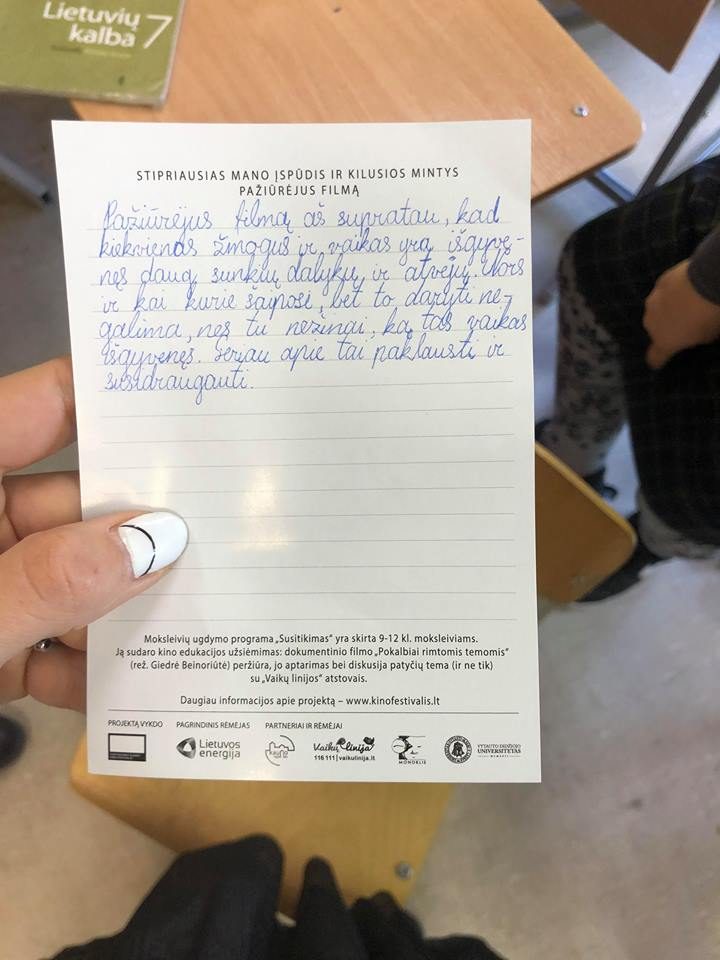 Lietuvių
kalba 7
STIPRIAUSIAS MANO ĮSPŪDIS IR KILUSIOS MINTYS
PAŽIŪRĖJUS FILMĄ
Pažiūrėjus filmą aš supratau, kad
kiekvienas žmogus ir vaikas yra išgyve-
nęs daug sunkių dalykų ir atvejų. Nors
ir kai kurie šaiposi, bet to daryti ne-
galima, nes tu nežinai, ką tas vaikas
išgyvenęs. Geriau apie tai paklausti ir
susidraugauti.
Moksleivių ugdymo programa „Susitikimas" yra skirta 9-12 kl. moksleiviams.
Ją sudaro kino edukacijos užsiėmimas: dokumentinio filmo „Pokalbiai rimtomis temomis"
(rež. Giedrė Beinoriūtė) peržiūra, jo aptarimas bei diskusija patyčių tema (ir ne tik)
su „Vaikų linijos" atstovais.
Daugiau informacijos apie projektą – www.kinofestivalis.lt
PROJEKTĄ VYKDO PAGRINDINIS RĖMĖJAS PARTNERIAI IR RĖMĖJAI
Lietuvos
energija
Vaikų linija
116 111 | vaikulinija.lt
MONOKLIS
VYTAUTO DIDŽIOJO
UNIVERSITETAS